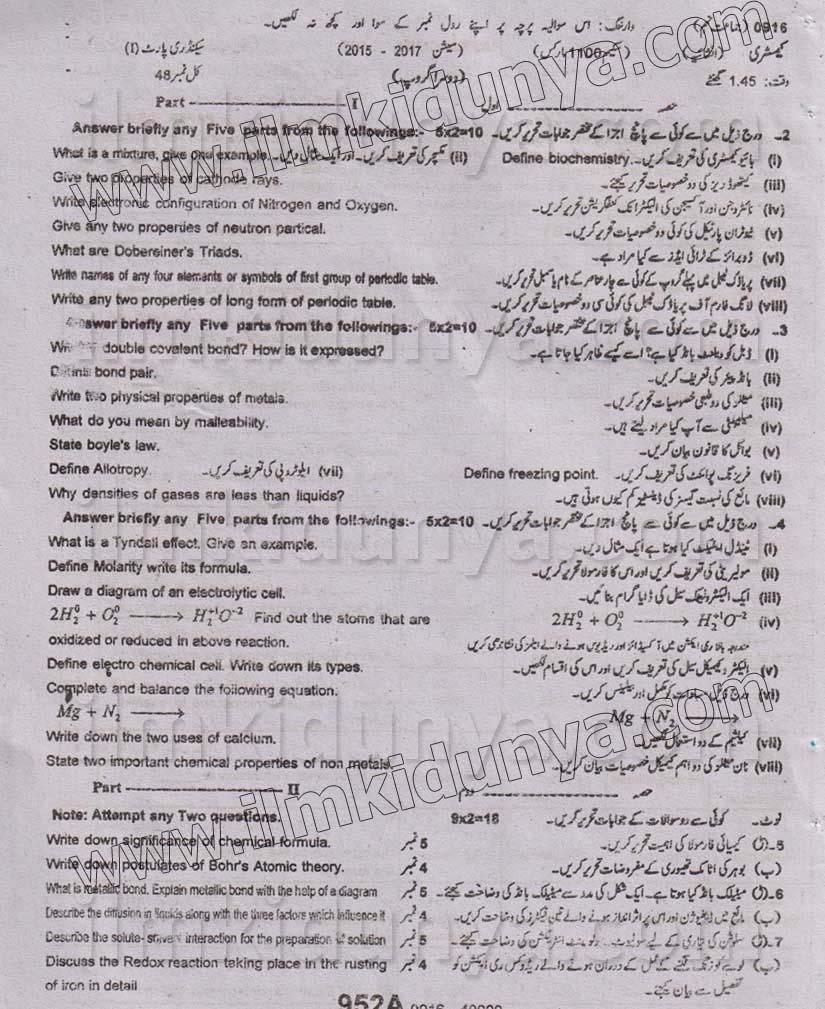 0916 وارننگ: اس سوالیہ پرچہ پر اپنے رول نمبر کے سوا اور کچھ نہ لکھیں۔
کیمسٹری (سیشن 2015 - 2017) سیکنڈری پارٹ (I)
وقت: 1.45 گھنٹے (دوسرا گروپ) کل نمبر 48
Part I حصہ اول
Answer briefly any Five parts from the followings:- 5x2=10 2۔ درج ذیل میں سے کوئی سے پانچ اجزا کے مختصر جوابات تحریر کریں۔
What is a mixture, give one example. (ii) مکسچر کی تعریف کریں۔ اور ایک مثال دیں۔ Define biochemistry. (i) بائیو کیمسٹری کی تعریف کریں۔
Give two properties of cathode rays. (iii) کیتھوڈ ریز کی دو خصوصیات تحریر کیجئے۔
Write electronic configuration of Nitrogen and Oxygen. (iv) نائٹروجن اور آکسیجن کی الیکٹرانک کنفگریشن تحریر کریں۔
Give any two properties of neutron partical. (v) نیوٹران پارٹیکل کی کوئی دو خصوصیات تحریر کریں۔
What are Dobereiner's Triads. (vi) ڈوبرائنر کے ٹرائی ایڈز سے کیا مراد ہے۔
Write names of any four elements or symbols of first group of periodic table. (vii) پریاڈک ٹیبل میں پہلے گروپ کے کوئی سے چار عناصر کے نام یا سمبل تحریر کریں۔
Write any two properties of long form of periodic table. (viii) لانگ فارم آف پریاڈک ٹیبل کی کوئی سی دو خصوصیات تحریر کریں۔
Answer briefly any Five parts from the followings:- 5x2=10 3۔ درج ذیل میں سے کوئی سے پانچ اجزا کے مختصر جوابات تحریر کریں۔
double covalent bond? How is it expressed? (i) ڈبل کوویلنٹ بانڈ کیا ہے؟ اسے کیسے ظاہر کیا جاتا ہے۔
Define bond pair. (ii) بانڈ پیئر کی تعریف کریں۔
Write two physical properties of metals. (iii) میٹلز کی دو طبعی خصوصیات تحریر کریں۔
What do you mean by malleability. (iv) میلیبلٹی سے آپ کیا مراد لیتے ہیں۔
State boyle's law. (v) بوائل کا قانون بیان کریں۔
Define Allotropy. (vii) ایلوٹروپی کی تعریف کریں۔ Define freezing point. (vi) فریزنگ پوائنٹ کی تعریف کریں۔
Why densities of gases are less than liquids? (viii) مائع کی نسبت گیسز کی ڈینسٹیز کم کیوں ہوتی ہیں۔
Answer briefly any Five parts from the followings:- 5x2=10 4۔ درج ذیل میں سے کوئی سے پانچ اجزا کے مختصر جوابات تحریر کریں۔
What is a Tyndall effect. Give an example. (i) ٹنڈل ایفیکٹ کیا ہوتا ہے ایک مثال دیں۔
Define Molarity write its formula. (ii) مولیریٹی کی تعریف کریں اور اس کا فارمولا تحریر کریں۔
Draw a diagram of an electrolytic cell. (iii) ایک الیکٹرولیٹک سیل کی ڈایا گرام بنائیں۔
2H₂⁰ + O₂⁰ ⟶ H₂⁺¹O⁻² Find out the atoms that are 2H₂⁰ + O₂⁰ ⟶ H₂⁺¹O⁻² (iv)
oxidized or reduced in above reaction. مندرجہ بالا ری ایکشن میں آکسیڈائز اور ریڈیوس ہونے والے ایٹمز کی نشاندہی کریں
Define electro chemical cell. Write down its types. (v) الیکٹروکیمیکل سیل کی تعریف کریں اور اس کی اقسام لکھیں۔
Complete and balance the following equation. (vi) درج ذیل مساوات کو مکمل اور بیلنس کریں۔
Mg + N₂ ⟶ Mg + N₂ ⟶
Write down the two uses of calcium. (vii) کیلشیم کے دو استعمال لکھیں۔
State two important chemical properties of non metals. (viii) نان میٹلز کی دو اہم کیمیکل خصوصیات بیان کریں۔
Part II حصہ دوم
Note: Attempt any Two questions. 9x2=18 نوٹ۔ کوئی سے دو سوالات کے جوابات تحریر کریں۔
Write down significance of chemical formula. 5 نمبر 5۔(ا) کیمیائی فارمولا کی اہمیت تحریر کریں۔
Write down postulates of Bohr's Atomic theory. 4 نمبر (ب) بوہر کی اٹامک تھیوری کے مفروضات تحریر کریں۔
What is metallic bond. Explain metallic bond with the help of a diagram 5 نمبر 6۔(ا) میٹیلک بانڈ کیا ہوتا ہے۔ ایک شکل کی مدد سے میٹیلک بانڈ کی وضاحت کیجئے۔
Describe the diffusion in liquids along with the three factors which influence it 4 نمبر (ب) مائع میں ڈفیوژن اور اس پر اثر انداز ہونے والے تین فیکٹرز کی وضاحت کریں۔
Describe the solute- solvent interaction for the preparation of solution 5 نمبر 7۔(ا) سلوشن کی تیاری کے لیے سولیوٹ۔ سولوینٹ انٹرایکشن کی وضاحت کیجئے۔
Discuss the Redox reaction taking place in the rusting 4 نمبر (ب) لوہے کو زنگ لگنے کے عمل کے دوران ہونے والے ریڈوکس ری ایکشن کو
of iron in detail تفصیل سے بیان کیجئے۔
952A
www.ilmkidunya.com
www.ilmkidunya.com